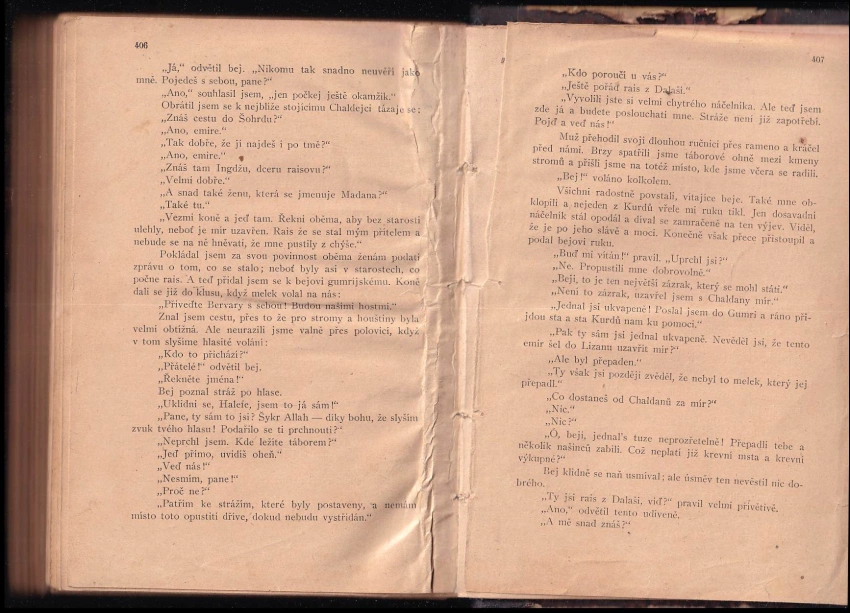 406
„Já,“ odvětil bej. „Nikomu tak snadno neuvěří jako
mně. Pojedeš s sebou, pane?“
„Ano,“ souhlasil jsem, „jen počkej ještě okamžik.“
Obrátil jsem se k nejblíže stojícímu Chaldejci tázaje se:
„Znáš cestu do Šohrdu?“
„Ano, emire.“
„Tak dobře, že ji najdeš i po tmě?“
„Ano, emire.“
„Znáš tam Ingdžu, dceru raisovu?“
„Velmi dobře.“
„A snad také ženu, která se jmenuje Madana?“
„Také tu.“
„Vezmi koně a jeď tam. Řekni oběma, aby bez starosti
ulehly, neboť je mír uzavřen. Rais že se stal mým přítelem a
nebude se na ně hněvati, že mne pustily z chýše.“
Pokládal jsem za svou povinnost oběma ženám podati
zprávu o tom, co se stalo; neboť byly asi v starostech, co
počne rais. A teď přidal jsem se k bejovi gumrijskému. Koně
dali se již do klusu, když melek volal na nás:
„Přiveďte Bervary s sebou! Budou našimi hostmi.“
Znal jsem cestu, přes to že pro stromy a houštiny byla
velmi obtížná. Ale neurazili jsme valně přes polovici, když
v tom slyšíme hlasité volání:
„Kdo to přichází?“
„Přátelé!“ odvětil bej.
„Řekněte jména!“
Bej poznal stráž po hlase.
„Uklidni se, Halefe, jsem to já sám!“
„Pane, ty sám to jsi? Šykr Allah — díky bohu, že slyším
zvuk tvého hlasu! Podařilo se ti prchnouti?“
„Neprchl jsem. Kde ležíte táborem?“
„Jeď přímo, uvidíš oheň.“
„Veď nás!“
„Nesmím, pane!“
„Proč ne?“
„Patřím ke strážím, které byly postaveny, a nemám
místo toto opustiti dříve, dokud nebudu vystřídán.“
407
„Kdo poroučí u vás?“
„Ještě pořád rais z Dalaši.“
„Vyvolili jste si velmi chytrého náčelníka. Ale teď jsem
zde já a budete poslouchati mne. Stráže není již zapotřebí.
Pojď a veď nás!“
Muž přehodil svoji dlouhou ručnici přes rameno a kráčel
před námi. Brzy spatřili jsme táborové ohně mezi kmeny
stromů a přišli jsme na totéž místo, kde jsme včera se radili.
„Bej!“ voláno kolkolem.
Všichni radostně povstali, vítajíce beje. Také mne ob-
klopili a nejeden z Kurdů vřele mi ruku tiskl. Jen dosavadní
náčelník stál opodál a díval se zamračeně na ten výjev. Viděl,
že je po jeho slávě a moci. Konečně však přece přistoupil a
podal bejovi ruku.
„Buď mi vítán!“ pravil. „Uprchl jsi?“
„Ne. Propustili mne dobrovolně.“
„Beji, to je ten největší zázrak, který se mohl státi.“
„Není to zázrak, uzavřel jsem s Chaldany mír.“
„Jednal jsi ukvapeně! Poslal jsem do Gumri a ráno při-
jdou sta a sta Kurdů nám ku pomoci.“
„Pak ty sám jsi jednal ukvapeně. Nevěděl jsi, že tento
emír šel do Lizanu uzavřít mír?“
„Ale byl přepaden.“
„Ty však jsi později zvěděl, že nebyl to melek, který jej
přepadl.“
„Co dostaneš od Chaldanů za mír?“
„Nic.“
„Nic?“
„Ó, beji, jednal's tuze neprozřetelně! Přepadli tebe a
několik našinců zabili. Což neplatí již krevní msta a krevní
výkupné?“
Bej klidně se naň usmíval; ale úsměv ten nevěstil nic do-
brého.
„Ty jsi rais z Dalaši, viď?“ pravil velmi přívětivě.
„Ano,“ odvětil tento udiveně.
„A mě snad znáš?“